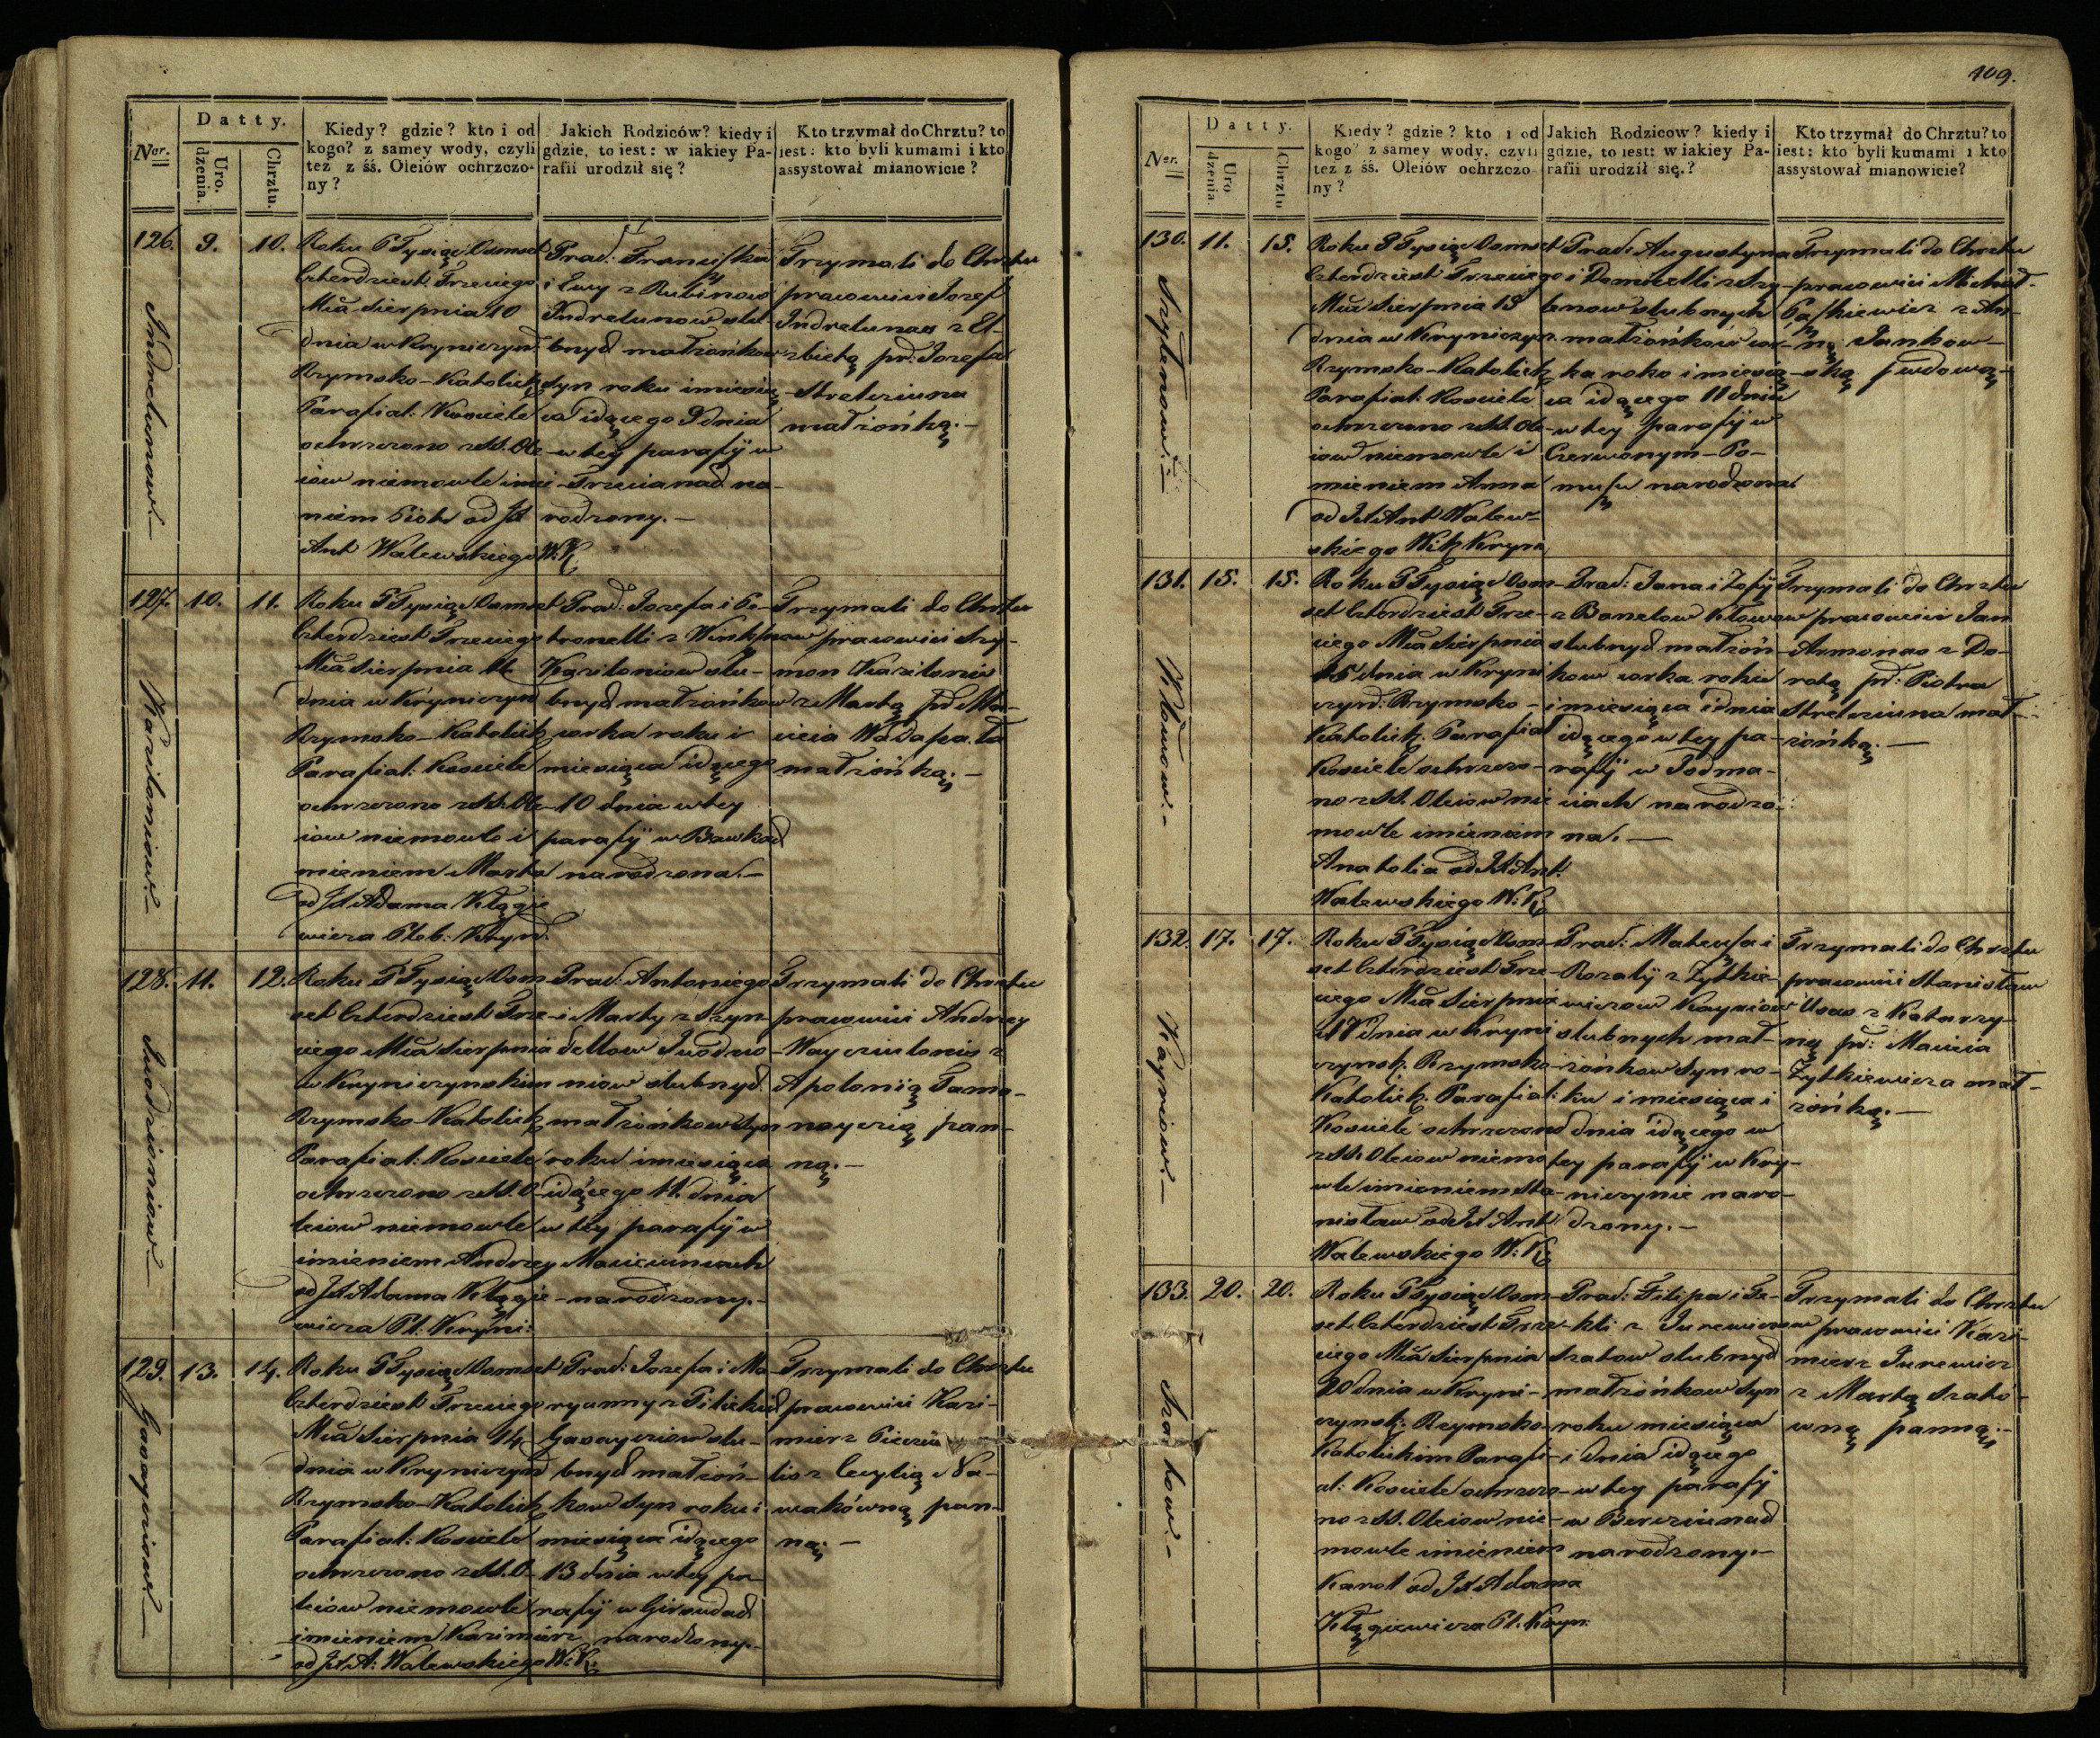 Datty.
Ner.
Uro. dzenia.
Chrztu.
Kiedy? gdzie? kto i od
kogo? z samey wody, czyli
też z śś. Oleiów ochrzczo-
ny?
Jakich Rodziców? kiedy i
gdzie, to iest: w iakiey Pa-
rafii urodził się?
Kto trzymał do Chrztu? to
iest: kto byli kumami i kto
assystował mianowicie?
126. 9. 10.
Roku Tysiąc Osmset
Czterdziest Trzeciego
Mca Sierpnia 10
dnia w Kryniczyn:
Rzymsko-Katolick
Parafial: Kosciele
ochrzczono z SS. Ole-
iow niemowle imie
niem Piotr od JX
Ant Walewskiego W: K
Prac: Franciszka
i Ewy z Rubinow
Indrelunow slu-
bnych małżonkow
syn roku i miesią-
ca idącego 9 dnia
w tey parafij w
rodzony.
Trzymali do Chrztu
pracowici Jozef
Indrelunas z El-
zbietą pr: Jozefa
Streleziuna
małżonką.
Indrelunow
127. 10. 11.
Roku Tysiąc Osmset
Czterdziest Trzeciego
Mca Sierpnia 11
dnia w Kryniczyn
Rzymsko-Katolick
Parafial: Kosciele
ochrzczono z SS. Ole-
iow niemowle i
mieniem Marta
od JX Adama Kłągie
wicza Pleb: Kryn:
Prac: Jozefa i Pe-
tronelli z
Kaziloniow slu-
bnych małżonkow
corka roku i
miesiąca idącego
10 dnia w tey
parafij w
narodzona.
Trzymali do Chrztu
pracowici Szy-
mon Kazilonis
z Martą pr: Ma-
cieia
małżonką.
Kaziloniow
128. 11. 12.
Roku Tysiąc Osm
set Czterdziest Trze-
ciego Mca Sierpnia
w Kryniczynskim
Rzymsko-Katolick
Parafial: Kosciele
ochrzczono z SS. O-
leiow niemowle
imieniem Andrzey
od JX Adama Kłągie-
wicza Pl: Kryni:
Prac: Antoniego
i Marty z Szyn-
dellow Juodzio-
niow slubnych
małżonkow syn
roku i miesiąca
idącego 11. dnia
w tey parafij w
Macieiunach
narodzony.
Trzymali do Chrztu
pracowici Andrzey
Wayciulonis z
Apolonią Tamo-
nayczią pan-
ną.
Juodzioniow
129. 13. 14.
Roku Tysiąc Osmset
Czterdziest Trzeciego
Mca Sierpnia 14
dnia w Krynicz
Rzymsko-Katolick
Parafial: Kosciele
ochrzczono z SS. O-
leiow niemowle
imieniem Kazimierz
od JX A: Walewskiego W: K
Prac: Jozefa i Ma-
ryanny z
Gasayciow slu-
bnych małżon-
kow syn roku i
miesiąca idącego
13 dnia w tey pa-
rafij w Girsudach
narodzony.
Trzymali do Chrztu
pracowici Kazi-
mierz
z Cecylią No-
wakówną pan-
ną.
Gasayciow
109.
Datty.
Ner.
Uro dzenia.
Chrztu
Kiedy? gdzie? kto i od
kogo? z samey wody, czyli
też z śś. Oleiów ochrzczo
ny?
Jakich Rodzicow? kiedy i
gdzie, to iest: w iakiey Pa-
rafii urodził się.?
Kto trzymał do Chrztu? to
iest: kto byli kumami i kto
assystował mianowicie?
130. 11. 15.
Roku Tysiąc Osmset
Czterdziest Trzeciego
Mca Sierpnia 15
dnia w Kryniczyn.
Rzymsko-Katolick
Parafial: Kosciele
ochrzczono z SS. Ole-
iow niemowle i
mieniem Anna
od JX Ant Walew-
skiego Wik Kryn
Prac: Augustyna
i Domicelli z Szy-
lenow slubnych
małżonków cor-
ka roko i miesią-
ca idącego 11 dnia
w tey parafij w
Czerwonym-Po-
narodzona.
Trzymali do Chrztu
pracowici Michał
Paszkiewicz z An-
ną Jankow-
ską wdową
Szylenow
131. 15. 15.
Roku Tysiąc Osm-
set Czterdziest Trze-
ciego Mca Sierpnia
15 dnia w Kryni
czyn: Rzymsko-
Katolick. Parafial
Kosciele ochrzczo-
no z SS. Oleiow nie
mowle imieniem
Anatolia od JX Ant:
Walewskiego W: K
Prac: Jana i Zofij
z Banelow Kłowow
slubnych małżon-
kow corka roku
i miesiąca i dnia
idącego w tey pa-
rafij w Podma-
ciach narodzo
na.
Trzymali do Chrztu
pracowici Jan
Armonas z Do-
rotą pr: Piotra
Streleziuna mał-
żonką.
Kłowow.
132. 17. 17.
Roku Tysiąc Osm-
set Czterdziest Trze-
ciego Mca Sierpnia
17 dnia w Kryni
czynsk: Rzymsko-
Katolick. Parafial:
Kosciele ochrzczono
z SS. Oleiow niemo
wle imieniem Sta-
nisław od JX Ant
Walewskiego W: K
Prac: Mateusza i
Rozalij z Zytkie-
wiczow Kayriow
slubnych mał-
żonkow syn ro-
ku i miesiąca i
dnia idącego w
tey parafij w Kry-
niczynie naro-
dzony.
Trzymali do Chrztu
pracowici Stanisław
Usas z Katarzy-
ną pr: Macieia
Zytkiewicza mał-
żonką.
Kayriow.
133. 20. 20.
Roku Tysiąc Osm-
set Czterdziest Trze-
ciego Mca Sierpnia
20 dnia w Kryni-
czynsk: Rzymsko-
Katolickim Parafi-
al: Kosciele ochrzczo-
no z SS. Oleiow nie-
mowle imieniem
Karol od JX Adama
Kłągiewicza Pl. Kryn:
Prac: Filipa i Te-
kli z Jurewiczow
Szatow slubnych
małżonkow syn
roku miesiąca
i dnia idącego
w tey parafij
w Berziunach
narodzony.
Trzymali do Chrztu
pracowici Kazi-
mierz Jurewicz
z Martą Szato-
wną panną.
Szatow.